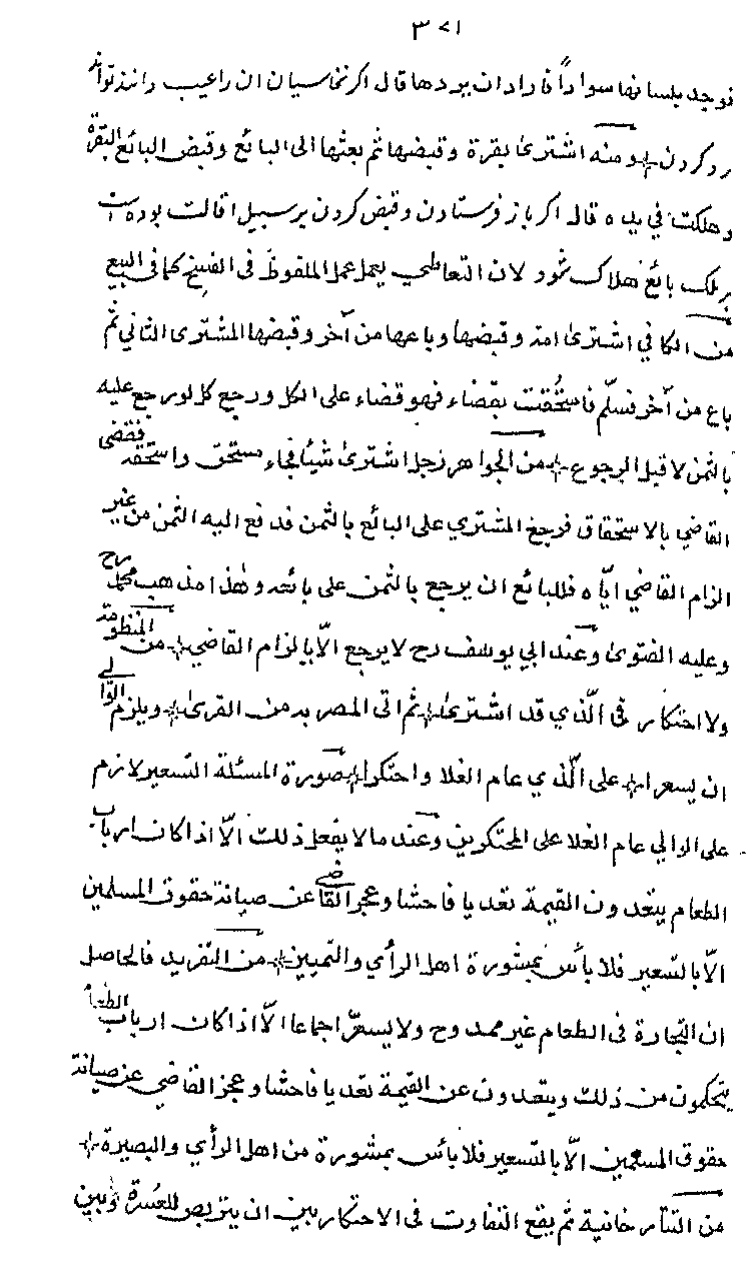 ٣٧١
فوجد بلسانها سواداً فاراد ان يردها قال اكر نخاسيان ان را عيب دانند تواند
رد كردن ومنه اشترى بقرة وقبضها ثم بعثها الى البائع وقبض البائع البقرة
وهلكت في يده قال اكر باز فرستادن وقبض كردن بر سبيل اقالت بوده است
بر ملك بائع هلاك شود لان التعاطي يعمل عمل الملفوظ فى الفسخ كما فى البيع
من الكافي اشترى امة وقبضها وباعها من آخر وقبضها المشترى الثانى ثم
باع من آخر فسلّم فاستُحقت بقضاء فهو قضاء على الكل ورجع كل لو رجع عليه
بالثمن لا قبل الرجوع من الجواهر رجل اشترى شيئا فجاء مستحق واستحقه فقضى
القاضي بالاستحقاق فرجع المشتري على البائع بالثمن فدفع اليه الثمن من غير
الزام القاضي ايّاه فللبائع ان يرجع بالثمن على بائعه وهذا مذهب محمد رح
وعليه الفتوى وعند ابي يوسف رح لا يرجع الّا بالزام القاضي من المنظومة
ولا احتكار فى الّذي قد اشترى ثم اتى المصر به من القرى ويلزم الوالي
ان يسعرا على الّذي عام الغلا واحتكرا صورة المسئلة التسعير لازم
على الوالي عام الغلا على المحتكرين وعندما لا يفعل ذلك الّا اذا كان ارباب
الطعام يتعدون القيمة تعديا فاحشا وعجز القاضي عن صيانة حقوق المسلمين
الّا بالتسعير فلا بأس بمشورة اهل الرأي والتمييز من التفريد فالحاصل
ان التجارة فى الطعام غير ممدوح ولا يسعّر اجماعا الّا اذا كان ارباب الطعام
يتحكمون من ذلك ويتعدون عن القيمة تعديا فاحشا وعجز القاضي عن صيانة
حقوق المسلمين الّا بالتسعير فلا بأس بمشورة من اهل الرأي والبصيرة
من التتارخانية ثم يقع التفاوت فى الاحتكار بين ان يتربص للعسرة وبين